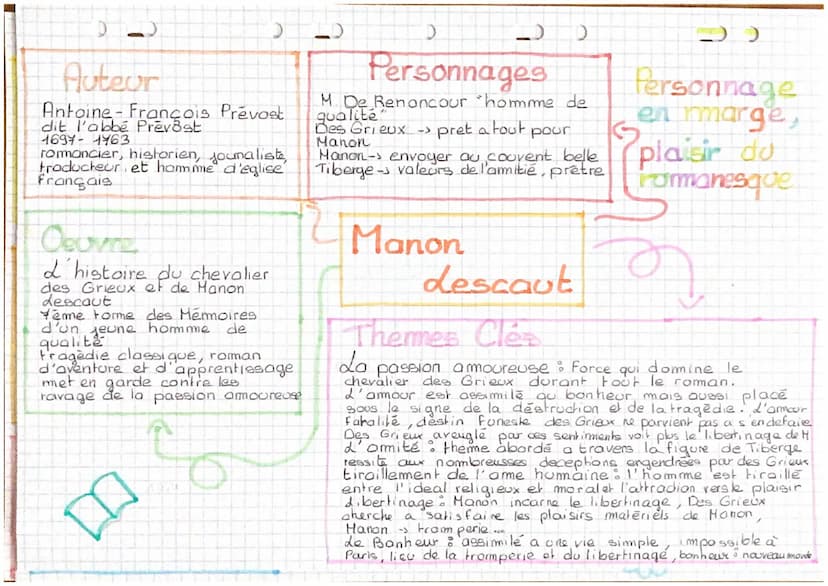 Auteur
Antoine-François Prévost
dit l'abbé Prévôst
1697- 1763
romancier, historien, journaliste,
traducteur et homme d'eglise
Français
Personnages
M. De Renoncour "homme de
qualité"
Des Grieux -> pret a tout pour
Manon
Manon -> envoyer au couvent belle
Tiberge -> valeurs de l'amitié, prêtre
Personnage
en marge,
plaisir du
romanesque
Manon
Lescaut
Oeuvre
L'histoire du chevalier
des Grieux et de Manon
Lescaut
7ème tome des Mémoires
d'un jeune homme de
qualité
tragédie classique, roman
d'aventure et d'apprentissage
met en garde contre les
ravage de la passion amoureuse
Thèmes Clés
La passion amoureuse : Force qui domine le
chevalier des Grieux durant tout le roman.
L'amour est assimilé au bonheur mais aussi placé
sous le signe de la destruction et de la tragédie. L'amour
fatalité, destin funeste des Grieux ne parvient pas a s'en defaire
Des Grieux aveuglé par ces sentiments voit plus le libertinage de M
L'amitié : thème abordé a travers la figure de Tiberge
ressite aux nombreusses deceptions engendrées par des Grieux
tiraillement de l'ame humaine : l'homme est tiraillé
entre l'ideal religieux et moral et l'attraction vers le plaisir
Libertinage : Manon incarne le libertinage, Des Grieux
cherche a satisfaire les plaisirs matériels de Manon,
Manon -> tromperie...
Le Bonheur : assimilé a une vie simple, impossible à
Paris, lieu de la tromperie et du libertinage, bonheur : nouveau monde